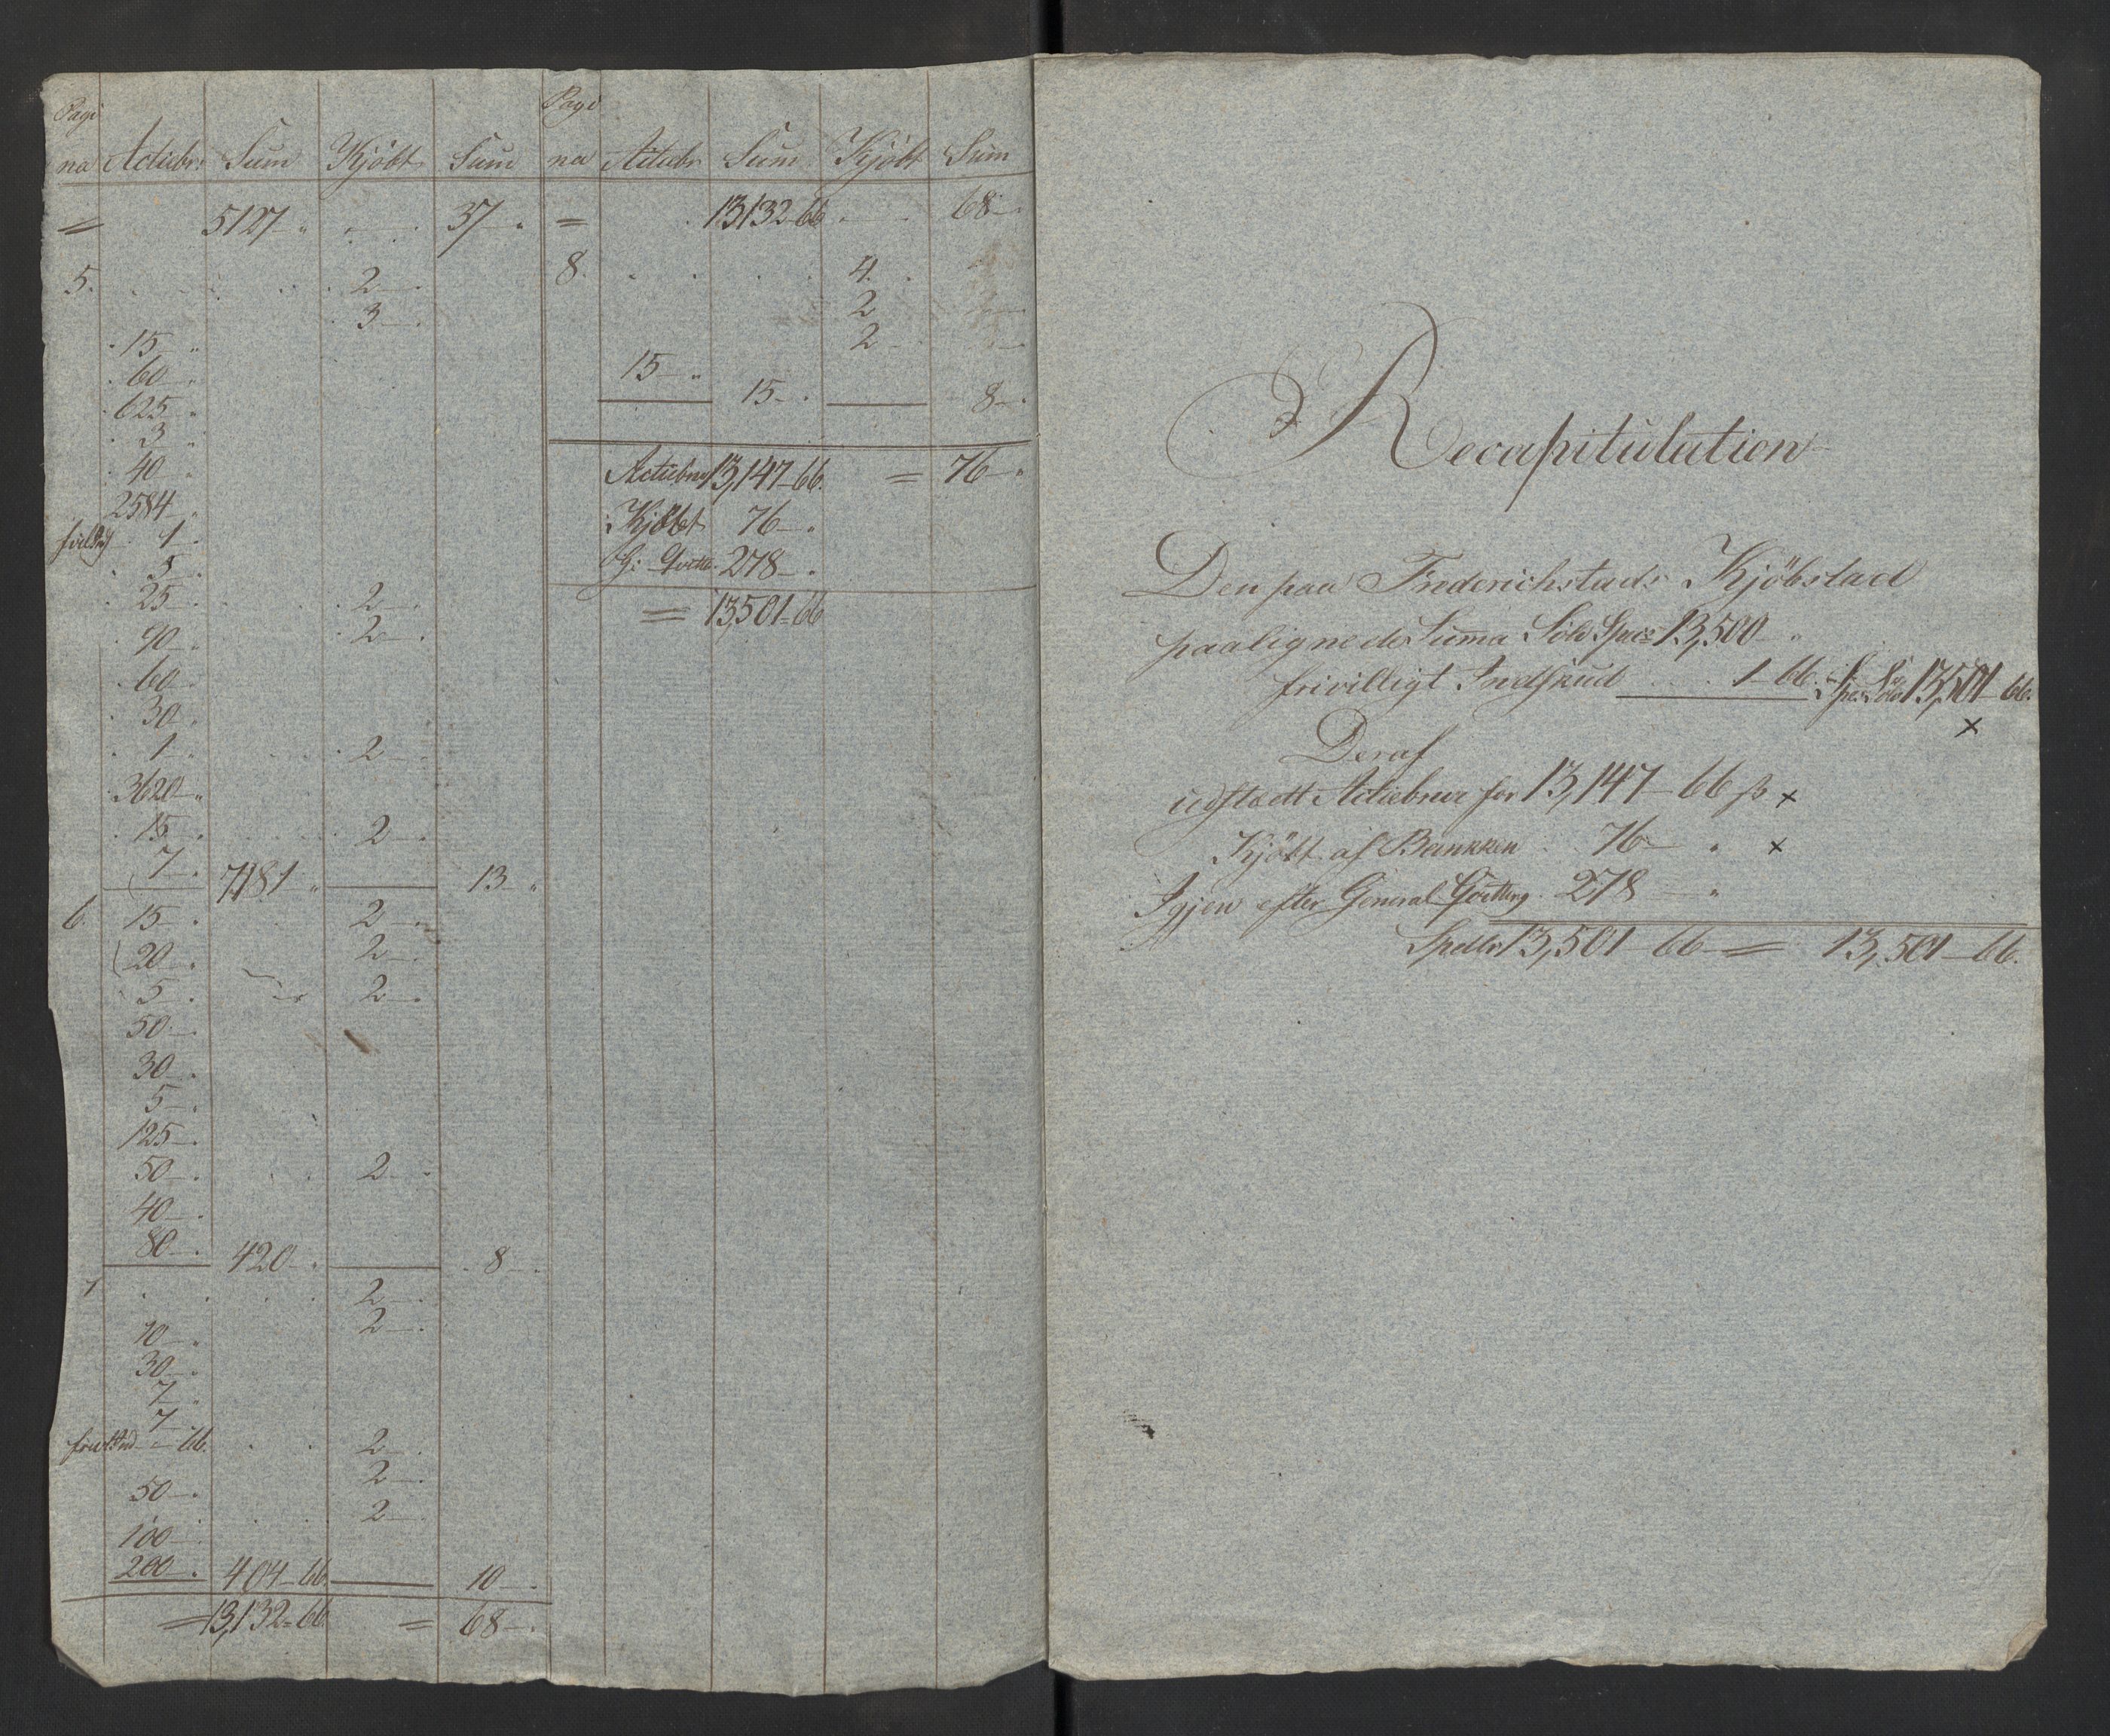 Pagi
na Actiebr: Sum Kjöbt Sum
= 5127 " 37 "
5. 2 —
3 —
15 — "
60 — "
625 — "
3 "
40 — "
2584 — "
1 "
5 —
25 — 2 —
90 — " 2 —
60 —
30 "
1 — 2 —
3620 — "
15 — 2 —
7 — 7,181 " 13 "
6. 15 — 2 —
20 — 2 —
5 — 2 —
50 —
30 —
5 —
125 —
50 — 2 —
40 —
80 — 420 — 8 —
7 2 —
10 — 2 —
30 —
7 "
7
— 66. 2 —
2 —
50 — 2 —
100 —
200 — 404 — 66. 10 —
= 13,132 = 66. = 68 —
Pagi
na Actiebr Sum Kjöbt Sum
= 13,132 — 66 68 —
8. 4.
2
2
15 — "
15 — 8 —
Actiebreve 13,147 — 66. = 76 — "
Kjöbt 76 — "
G: Qvitt. 278 —
= 13,501 = 66
Recapitulation
Den paa Frederichstads Kjöbstad
paalignede Summa Sölv Spec: 13,500 — "
frivilligt Indskud 1 — 66. Spec: Sölv 13,501 — 66.
x
Deraf
udstædt Actiebreve for 13,147 — 66 ß x
Kjöbt af Bankken 76 — " x
Igjen efter General Qvittering 278 — "
Spdlr 13,501 — 66 = 13,501 — 66.